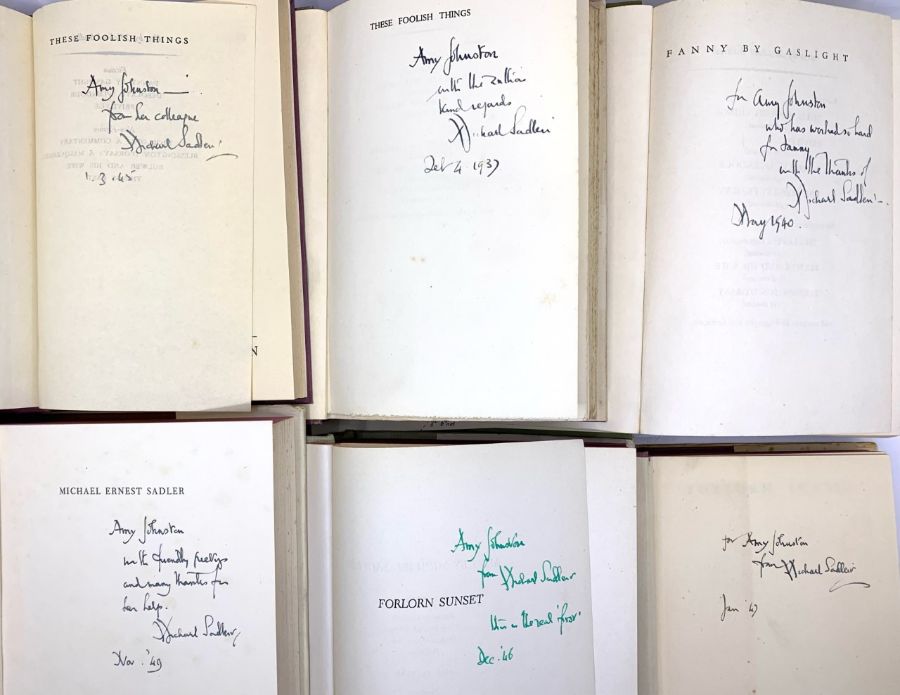 THESE FOOLISH THINGS
Amy Johnston —
from her colleague
Michael Sadleir
1.3.45
THESE FOOLISH THINGS
Amy Johnston
with the author's
kind regards
Michael Sadleir
Feb 4 1937
FANNY BY GASLIGHT
for Amy Johnston
who has worked so hard
for Fanny
with the thanks of
Michael Sadleir
May 1940.
MICHAEL ERNEST SADLER
Amy Johnston
with friendly feelings
and many thanks for
her help.
Michael Sadleir
Nov. '49
Amy Johnston
from Michael Sadleir
FORLORN SUNSET
this is the real 'first'
Dec. '46
for Amy Johnston
from Michael Sadleir
Jan 47